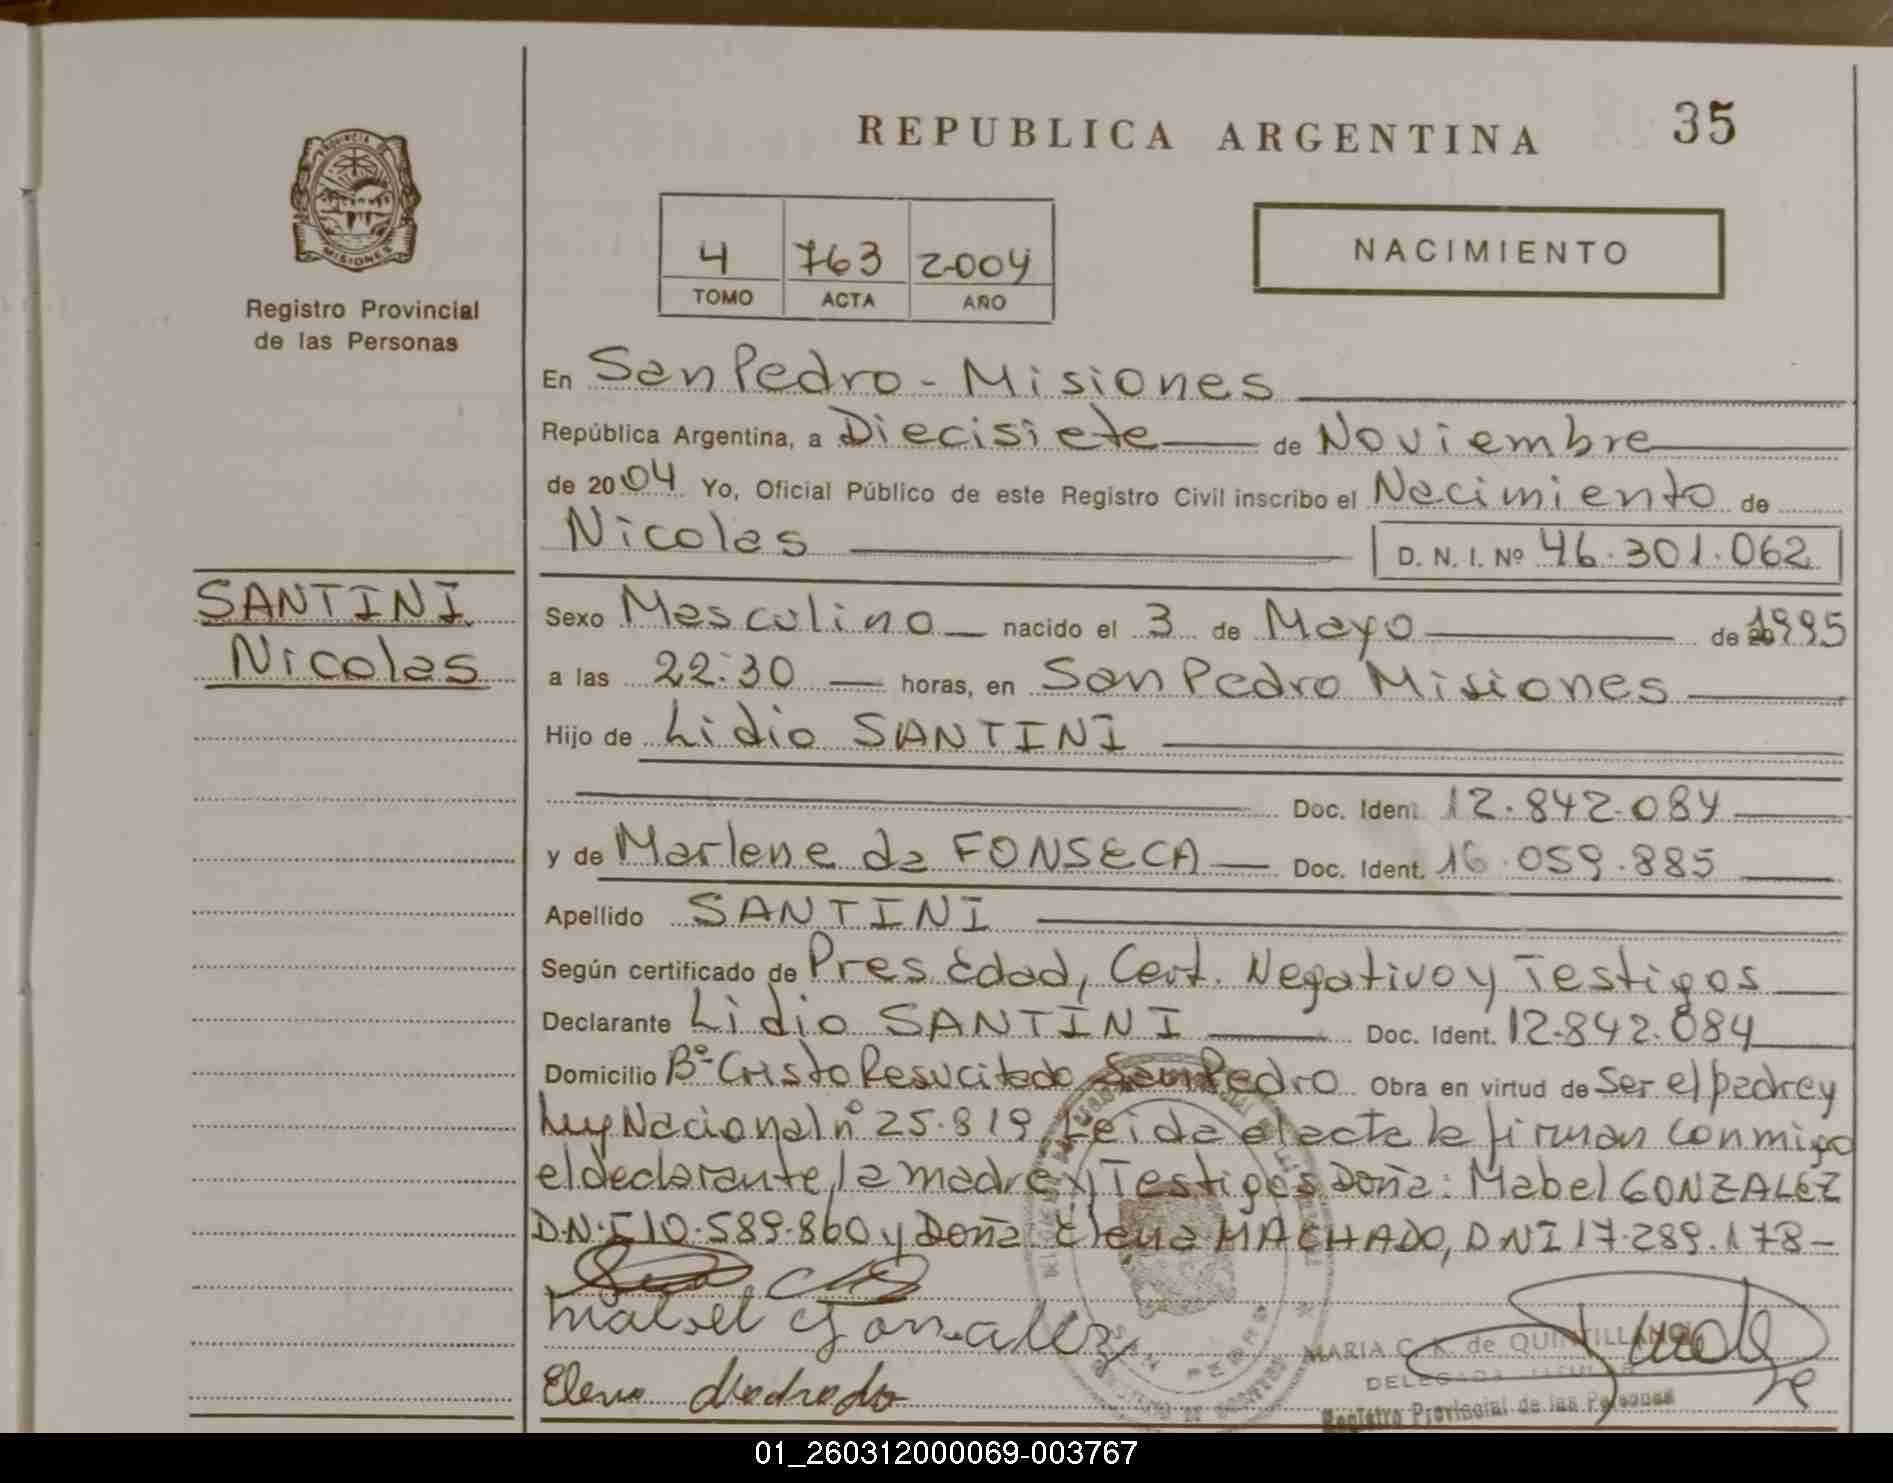 REPUBLICA ARGENTINA
35
PROVINCIA DE
MISIONES
Registro Provincial
de las Personas
4 763 2004
TOMO ACTA AÑO
NACIMIENTO
En San Pedro - Misiones
República Argentina, a Diecisiete de Noviembre
de 2004 Yo, Oficial Público de este Registro Civil inscribo el Nacimiento de
Nicolas D. N. I. Nº 46.301.062
SANTINI
Nicolas
Sexo Masculino nacido el 3 de Mayo de 1995
a las 22:30 horas, en San Pedro Misiones
Hijo de Lidio SANTINI
Doc. Ident. 12.842.084
y de Marlene da FONSECA Doc. Ident. 16.059.885
Apellido SANTINI
Según certificado de Pres. Edad, Cert. Negativo y Testigos
Declarante Lidio SANTINI Doc. Ident. 12.842.084
Domicilio Bº Cristo Resucitado San Pedro Obra en virtud de Ser el padre y
Ley Nacional nº 25.819 Leida el acta la firman conmigo
el declarante, la madre y Testigos Doña: Mabel GONZALEZ
D.N.I 10.589.860 y Doña Elena MACHADO, DNI 17.289.178-
Mabel Gonzalez
Elena Machado
SAN PEDRO
MARIA C. K. de QUINTILLAN
DELEGADA TITULAR
Registro Provincial de las Personas
01_260312000069-003767